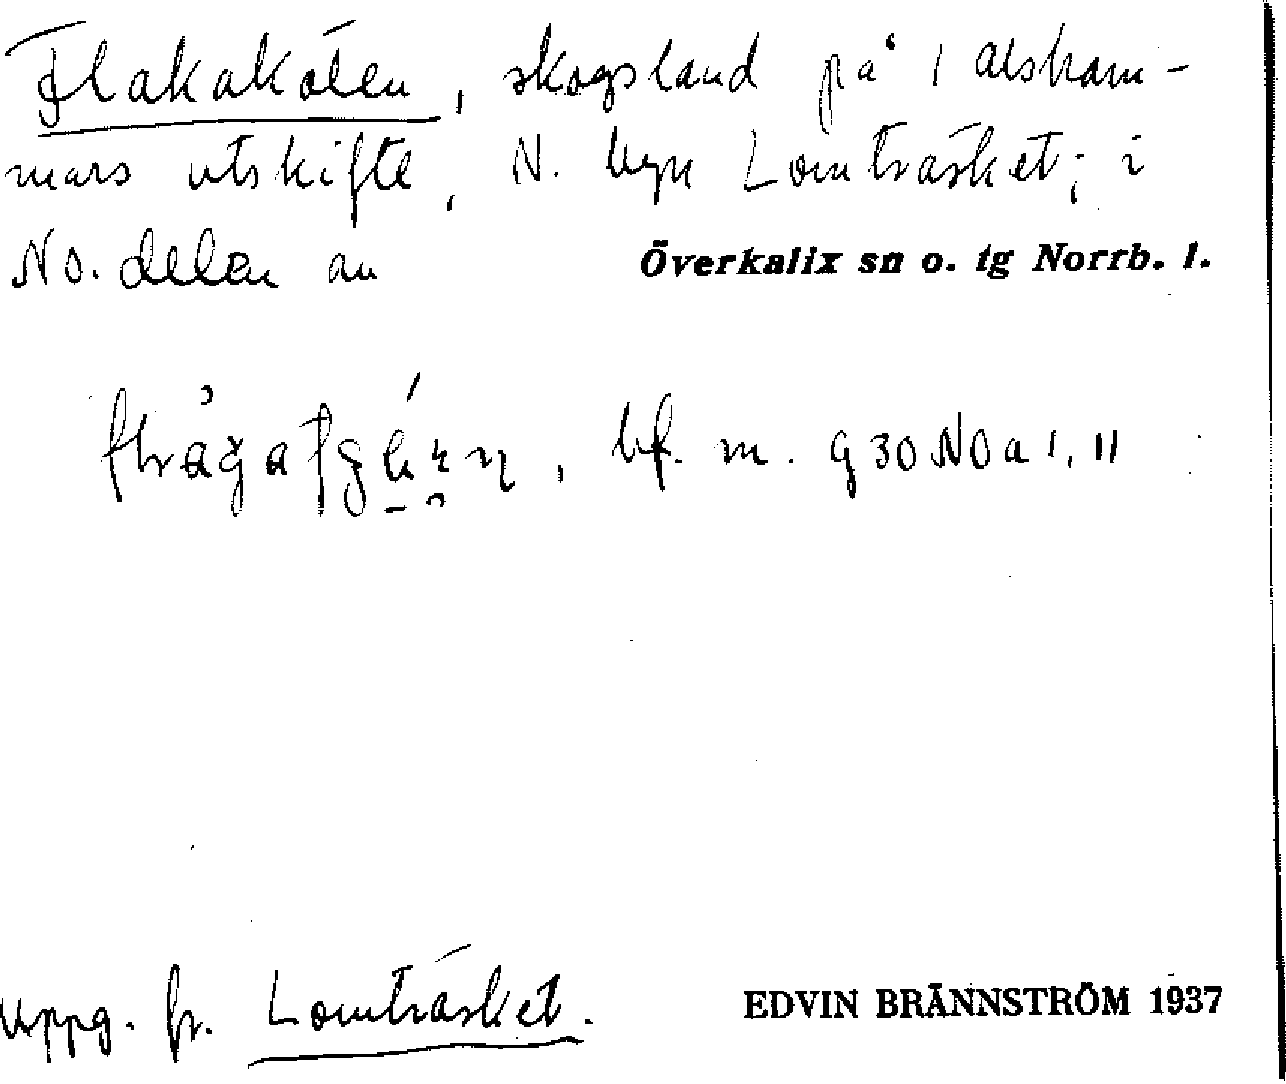 Flakakölen, skogsland på 1 Alsham-
mars utskifte, N. byn Lomträsket; i
No. delen av
Överkalix sn o. tg Norrb. l.
bf. m. g 30 NO a 1, 11
Uppg. fr. Lomträsket.
EDVIN BRÄNNSTRÖM 1937